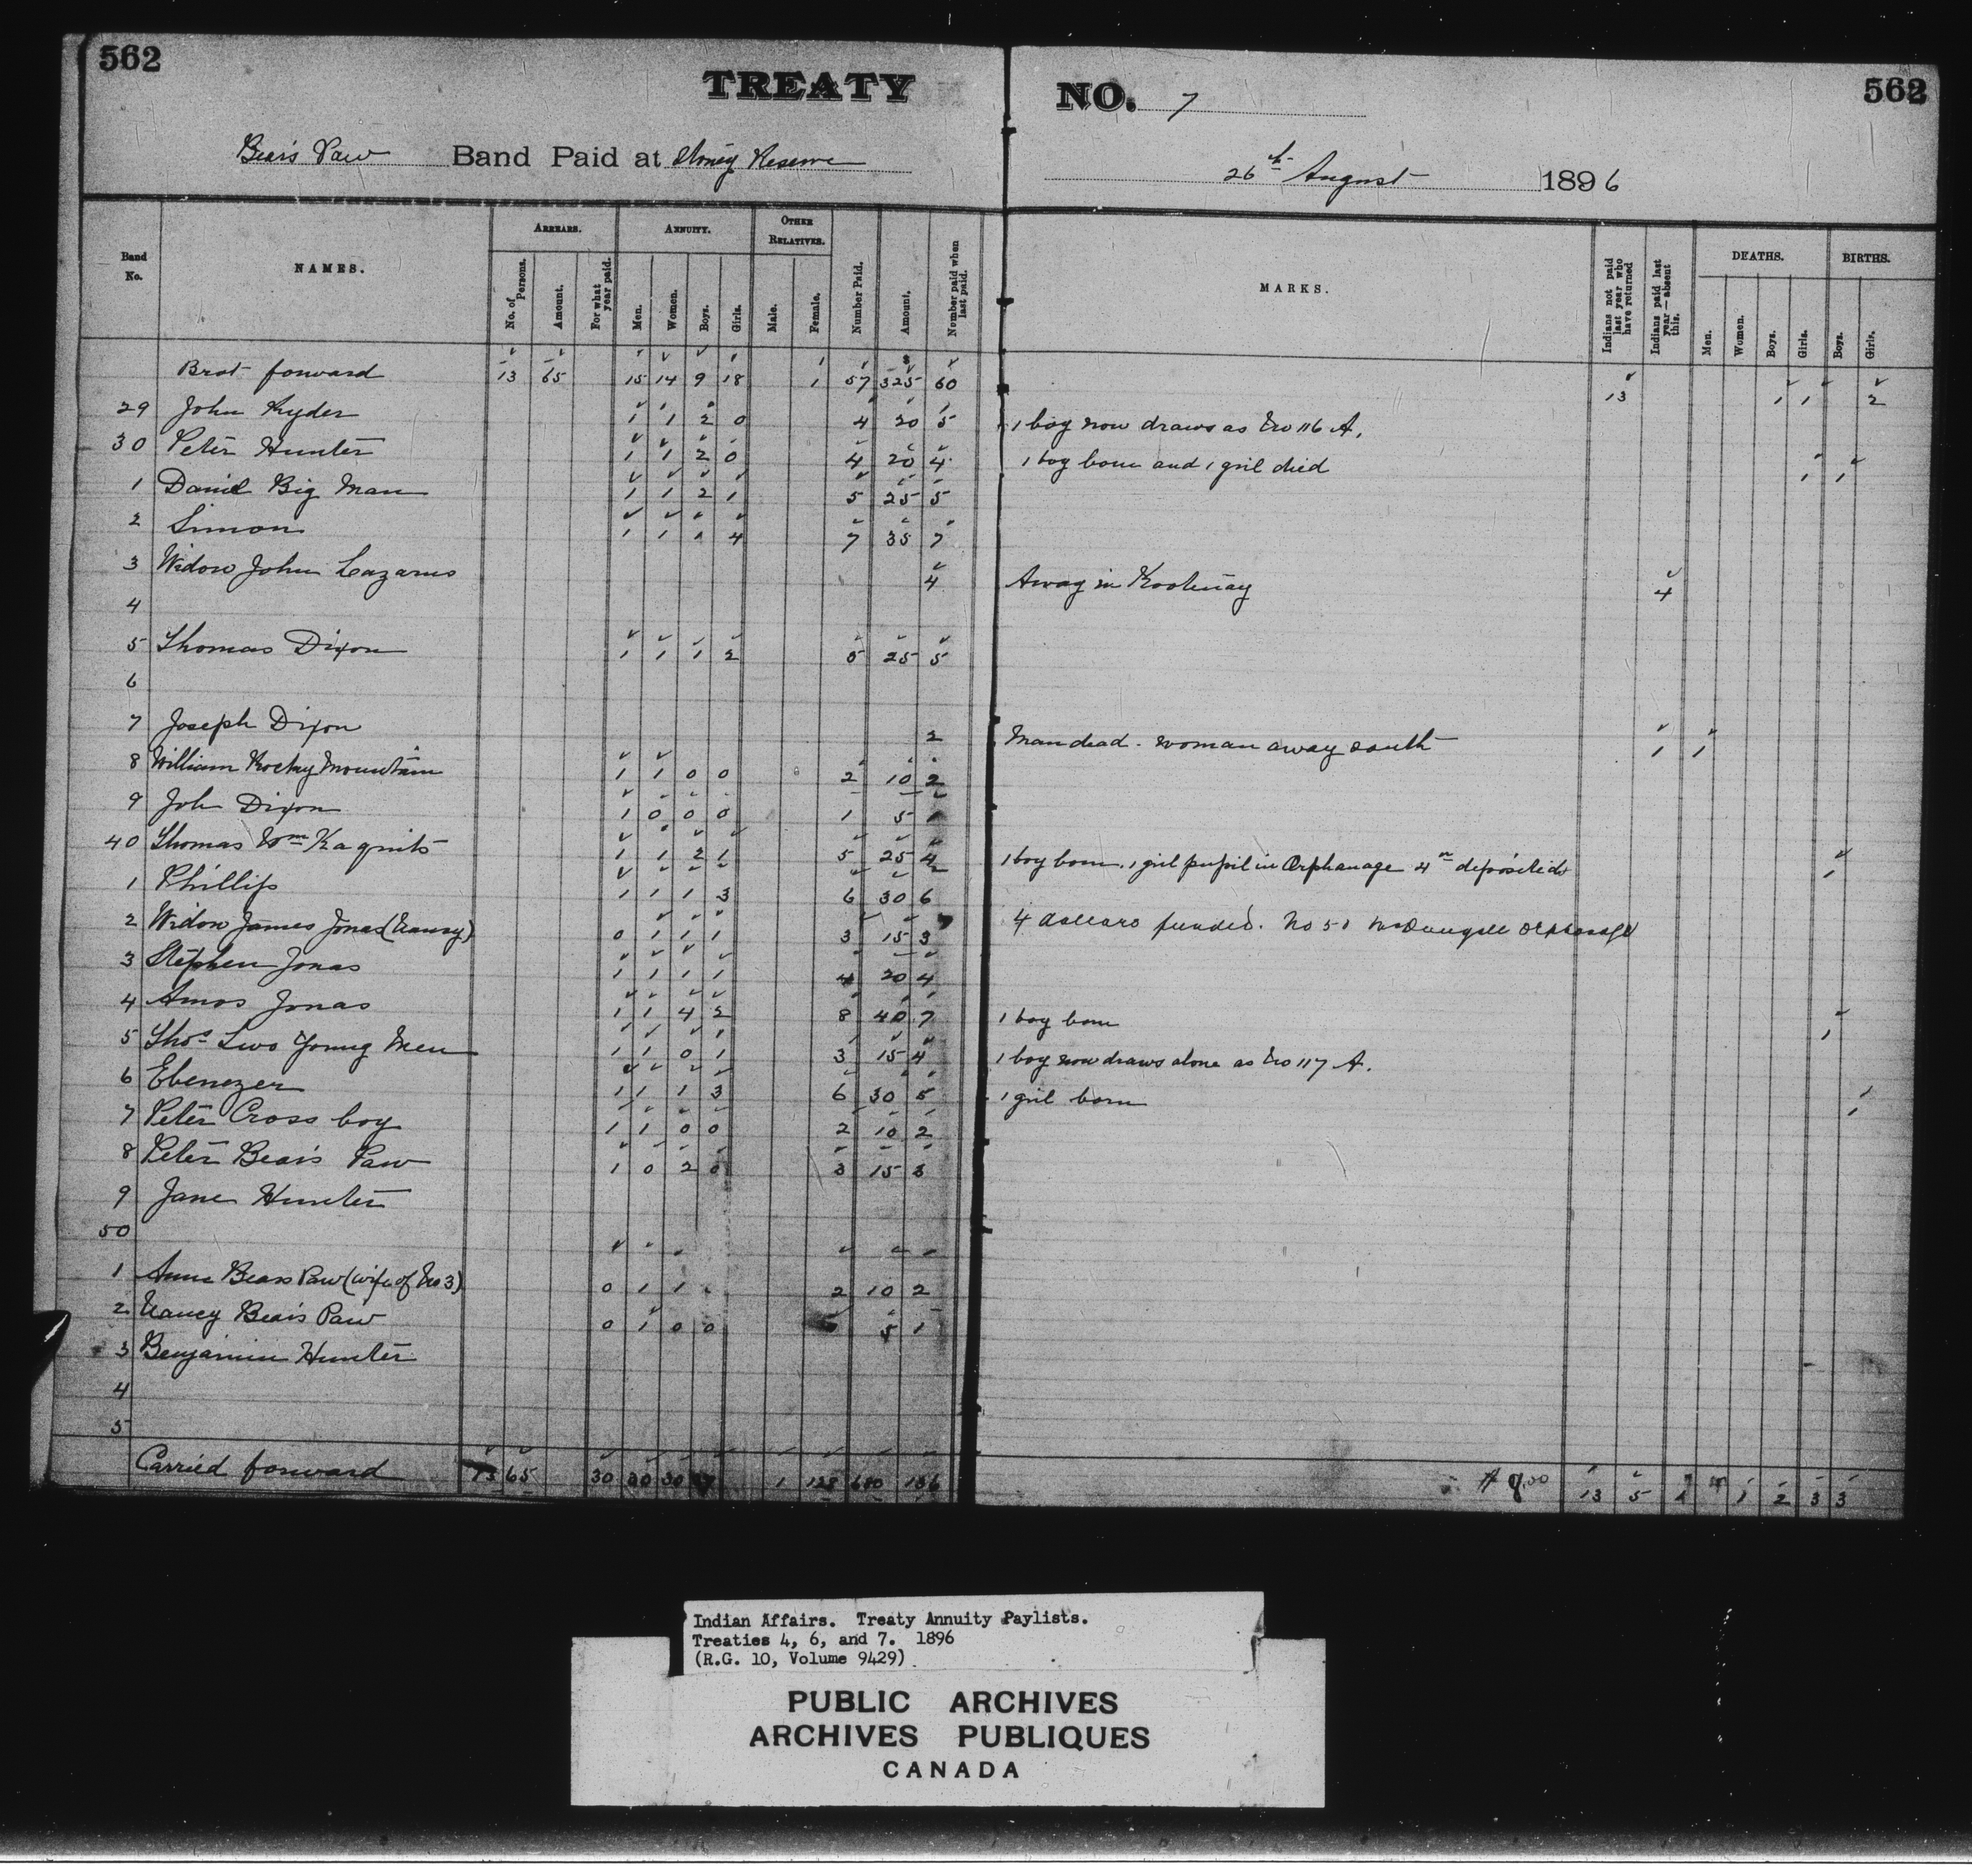 562
562
TREATY NO. 7
Bear's Paw Band Paid at Stoney Reserve
26th August 1896
Band No.
NAMES.
ARREARS.
No. of Persons.
Amount.
For what year paid.
ANNUITY.
Men.
Women.
Boys.
Girls.
OTHER RELATIVES.
Male.
Female.
Number Paid.
Amount.
Number paid when last paid.
MARKS.
Indians not paid last year who have returned
Indians paid last year—absent this.
DEATHS.
Men.
Women.
Boys.
Girls.
BIRTHS.
Boys.
Girls.
Brot forward 13 65 15 14 9 18 1 57 325 60 13 1 1 2
29 John Ryder 1 1 2 0 4 20 5 1 boy now draws as No 116 A.
30 Peter Hunter 1 1 2 0 4 20 4 1 boy born and 1 girl died 1 1
1 Daniel Big Man 1 1 2 1 5 25 5
2 Simon 1 1 1 4 7 35 7
3 Widow John Lazarus 4 Away in Kootenay 4
4
5 Thomas Dixon 1 1 1 2 5 25 5
6
7 Joseph Dixon 2 Man dead - woman away south 1 1
8 William Rocky Mountain 1 1 0 0 2 10 2
9 Job Dixon 1 0 0 0 1 5 1
40 Thomas Wm Kaquits 1 1 2 1 5 25 4 1 boy born. 1 girl pupil in Orphanage 4 deposited 1
1 Phillip 1 1 1 3 6 30 6
2 Widow James Jonas (Nancy) 0 1 1 1 3 15 3 4 dollars funded. No 50 McDougall Orphanage
3 Stephen Jonas 1 1 1 1 4 20 4
4 Amos Jonas 1 1 4 2 8 40 7 1 boy born 1
5 Thos Two Young Men 1 1 0 1 3 15 4 1 boy now draws alone as No 117 A.
6 Ebenezer 1 1 1 3 6 30 5 1 girl born 1
7 Peter Cross boy 1 1 0 0 2 10 2
8 Peter Bear's Paw 1 0 2 0 3 15 3
9 Jane Hunter
50
1 Anne Bears Paw (wife of No 3) 0 1 1 2 10 2
2 Nancy Bear's Paw 0 1 0 0 5 1
3 Benjamin Hunter
4
5
Carried forward 13 65 30 30 30 1 128 680 136 13 5 1 1 2 3 3
Indian Affairs. Treaty Annuity Paylists.
Treaties 4, 6, and 7. 1896
(R.G. 10, Volume 9429)
PUBLIC ARCHIVES
ARCHIVES PUBLIQUES
CANADA